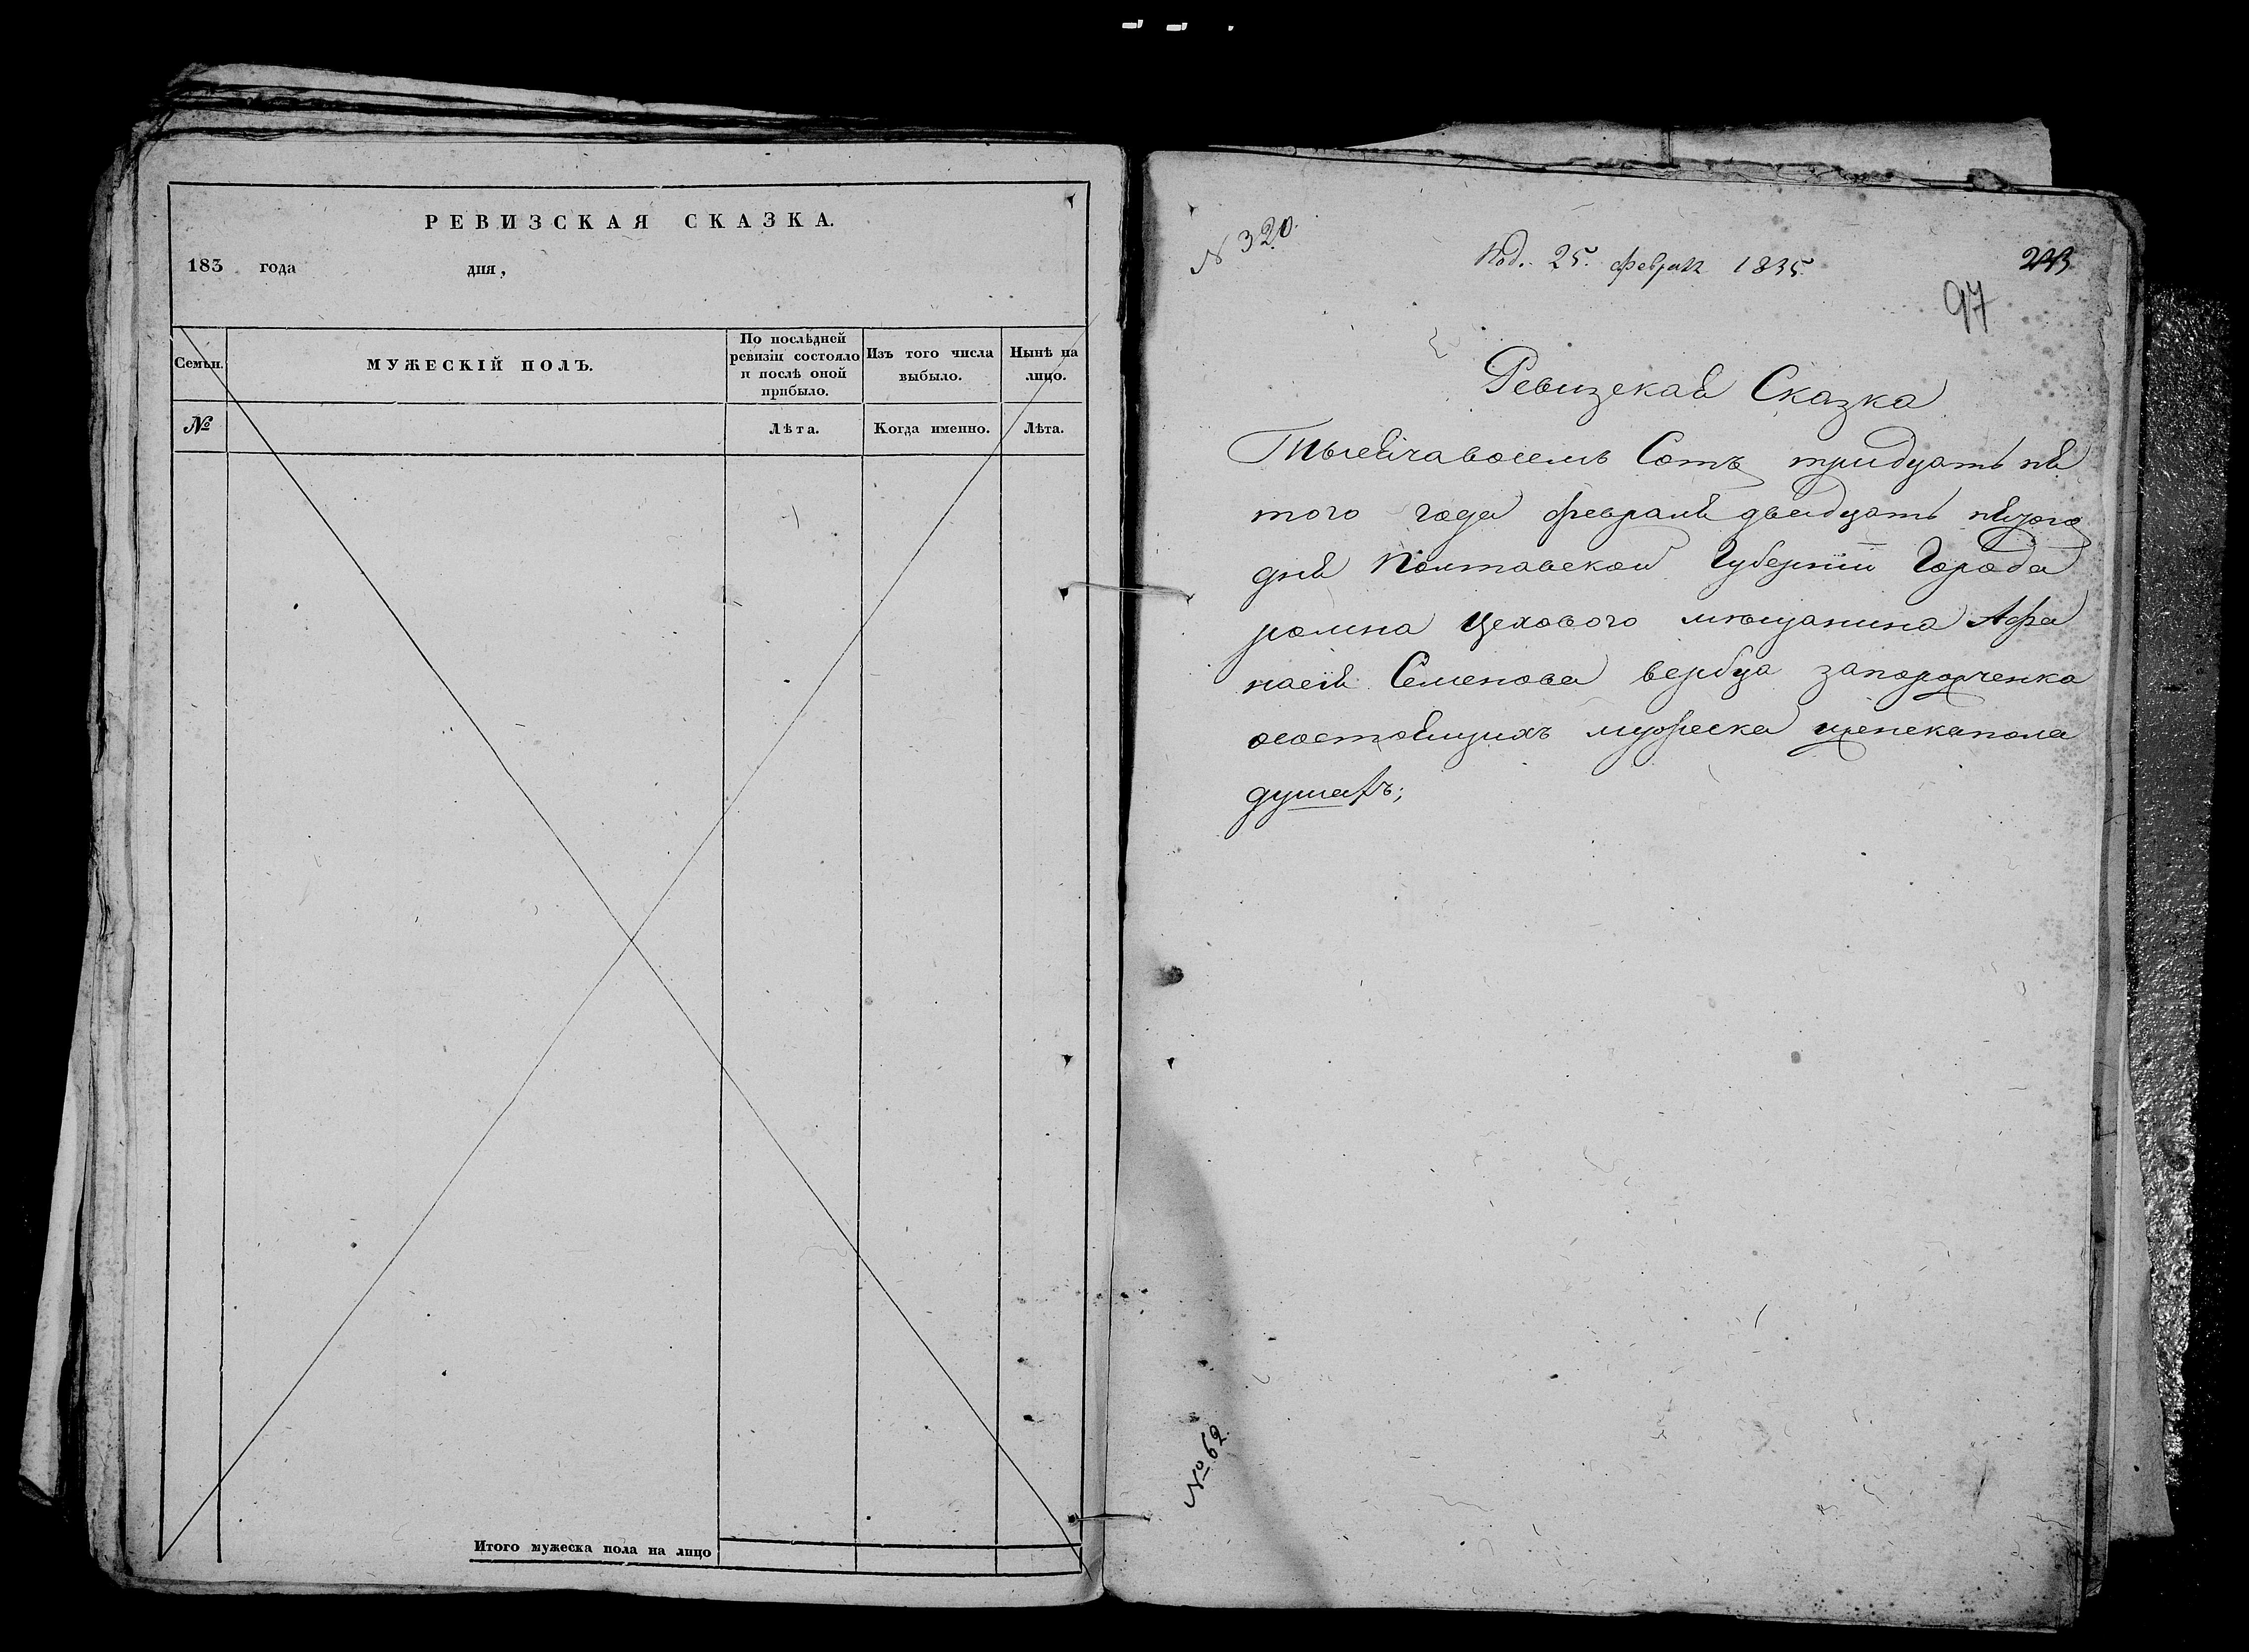 РЕВИЗСКАЯ СКАЗКА.
183 года дня,
Семьи.
МУЖЕСКІЙ ПОЛЪ.
По послѣдней
ревизіи состояло
и послѣ оной
прибыло.
Изъ того числа
выбыло.
Нынѣ на
лицо.
№
Лѣта.
Когда именно.
Лѣта.
Итого мужеска пола на лицо
N 320.
Под. 25. февраля 1835.
97
Ревизская Сказка
Тысяча восемь Сотъ тридцать пя
того года февраля двадцать пятого
дня Полтавской Губерніи Города
ромна Цехового мѣщанина Афа
насія Семенова вербца запорожченка
осостоящихъ мужеска иженска пола
душахъ;
№ 62